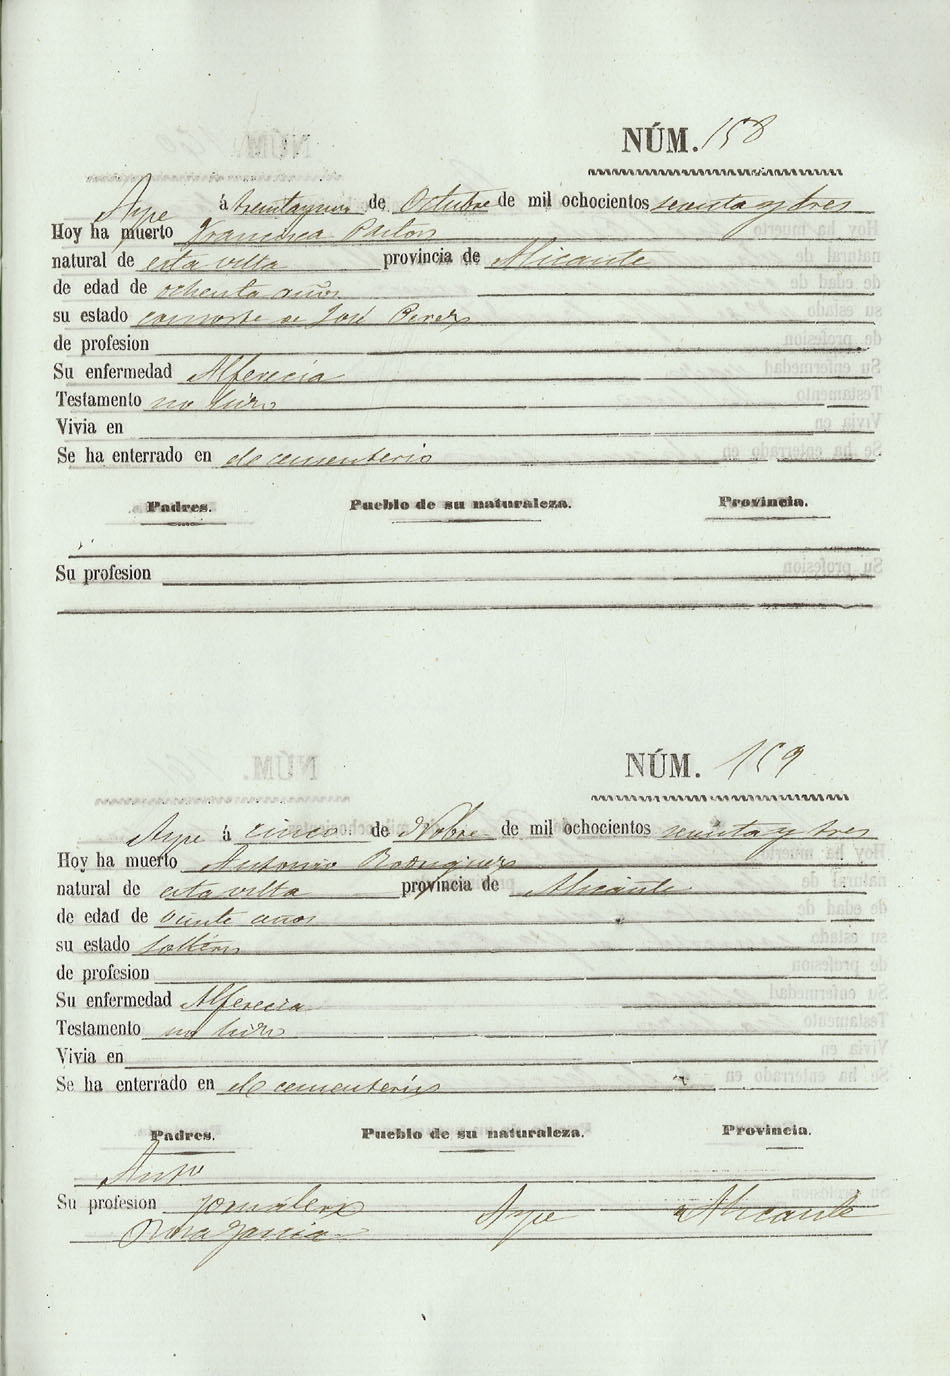 NÚM. 158
Aspe á treintayuno de Octubre de mil ochocientos sesenta y tres
Hoy ha muerto Francisca
natural de esta villa provincia de Alicante
de edad de ochenta años
su estado consorte de José Perez
de profesion
Su enfermedad Alferecia
Testamento no hizo
Vivia en
Se ha enterrado en el cementerio
Padres. Pueblo de su naturaleza. Provincia.
Su profesion
NÚM. 159
Aspe á cinco de Nobre de mil ochocientos sesenta y tres
Hoy ha muerto Antonio Rodriguez
natural de esta villa provincia de Alicante
de edad de veinte años
su estado soltero
de profesion
Su enfermedad Alferecia
Testamento no hizo
Vivia en
Se ha enterrado en el cementerio
Padres. Pueblo de su naturaleza. Provincia.
Antº
Su profesion jornalero Aspe Alicante
Rosa Garcia